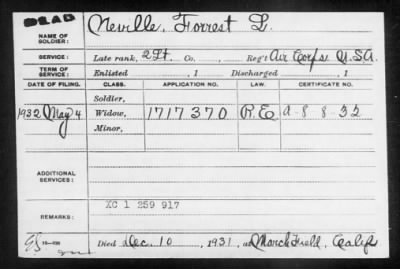 DEAD
NAME OF SOLDIER: Neville, Forrest L.
SERVICE: Late rank, 2Lt. Co. , Reg't Air Corps U.S.A.
TERM OF SERVICE: Enlisted , 1 Discharged , 1
DATE OF FILING. CLASS. APPLICATION NO. LAW. CERTIFICATE NO.
Soldier,
1932 May 4 Widow, 1717370 R.E. A-8-8-32
Minor,
ADDITIONAL SERVICES:
REMARKS: XC 1 259 917
Died Dec. 10 , 1931, at March Field, Calif